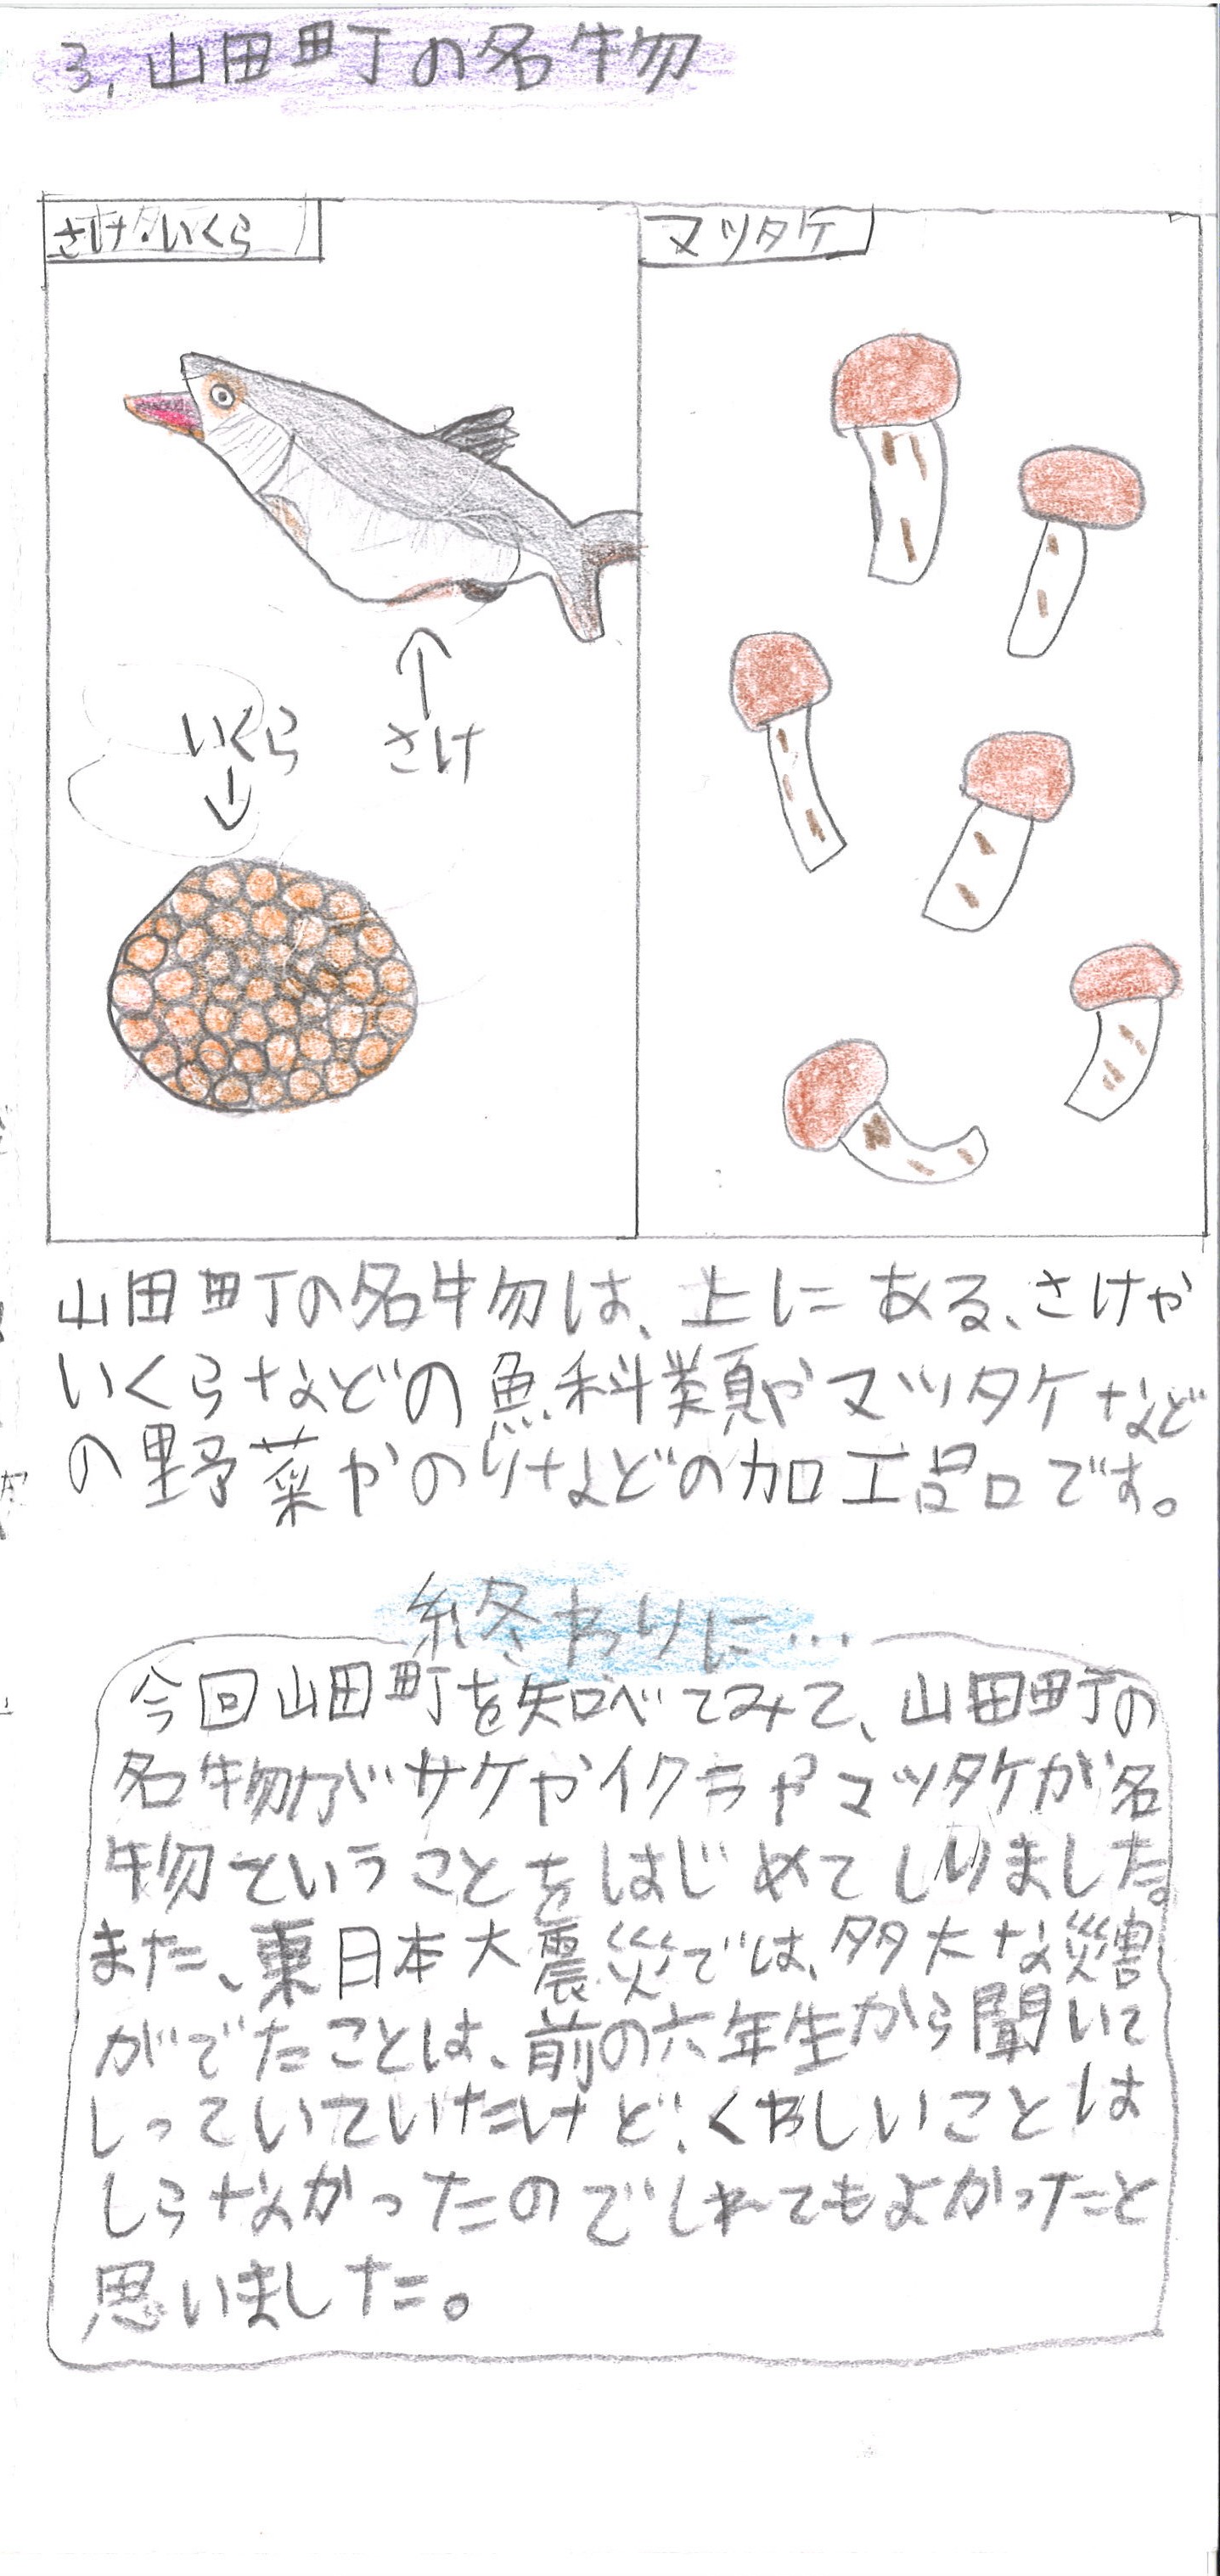 3, 山田町の名物
さけ・いくら
マツタケ
いくら
さけ
山田町の名物は、上にある、さけや
いくらなどの魚科類やマツタケなど
の野菜やのりなどの加工品です。
終わりに…
今回山田町を知らべてみて、山田町の
名物がサケやイクラやマツタケが名
物ということをはじめてしりました。
また、東日本大震災では、多大な災害
がでたことは、前の六年生から聞いて
しっていていたけど、くわしいことは
しらなかったのでしれてもよかったと
思いました。